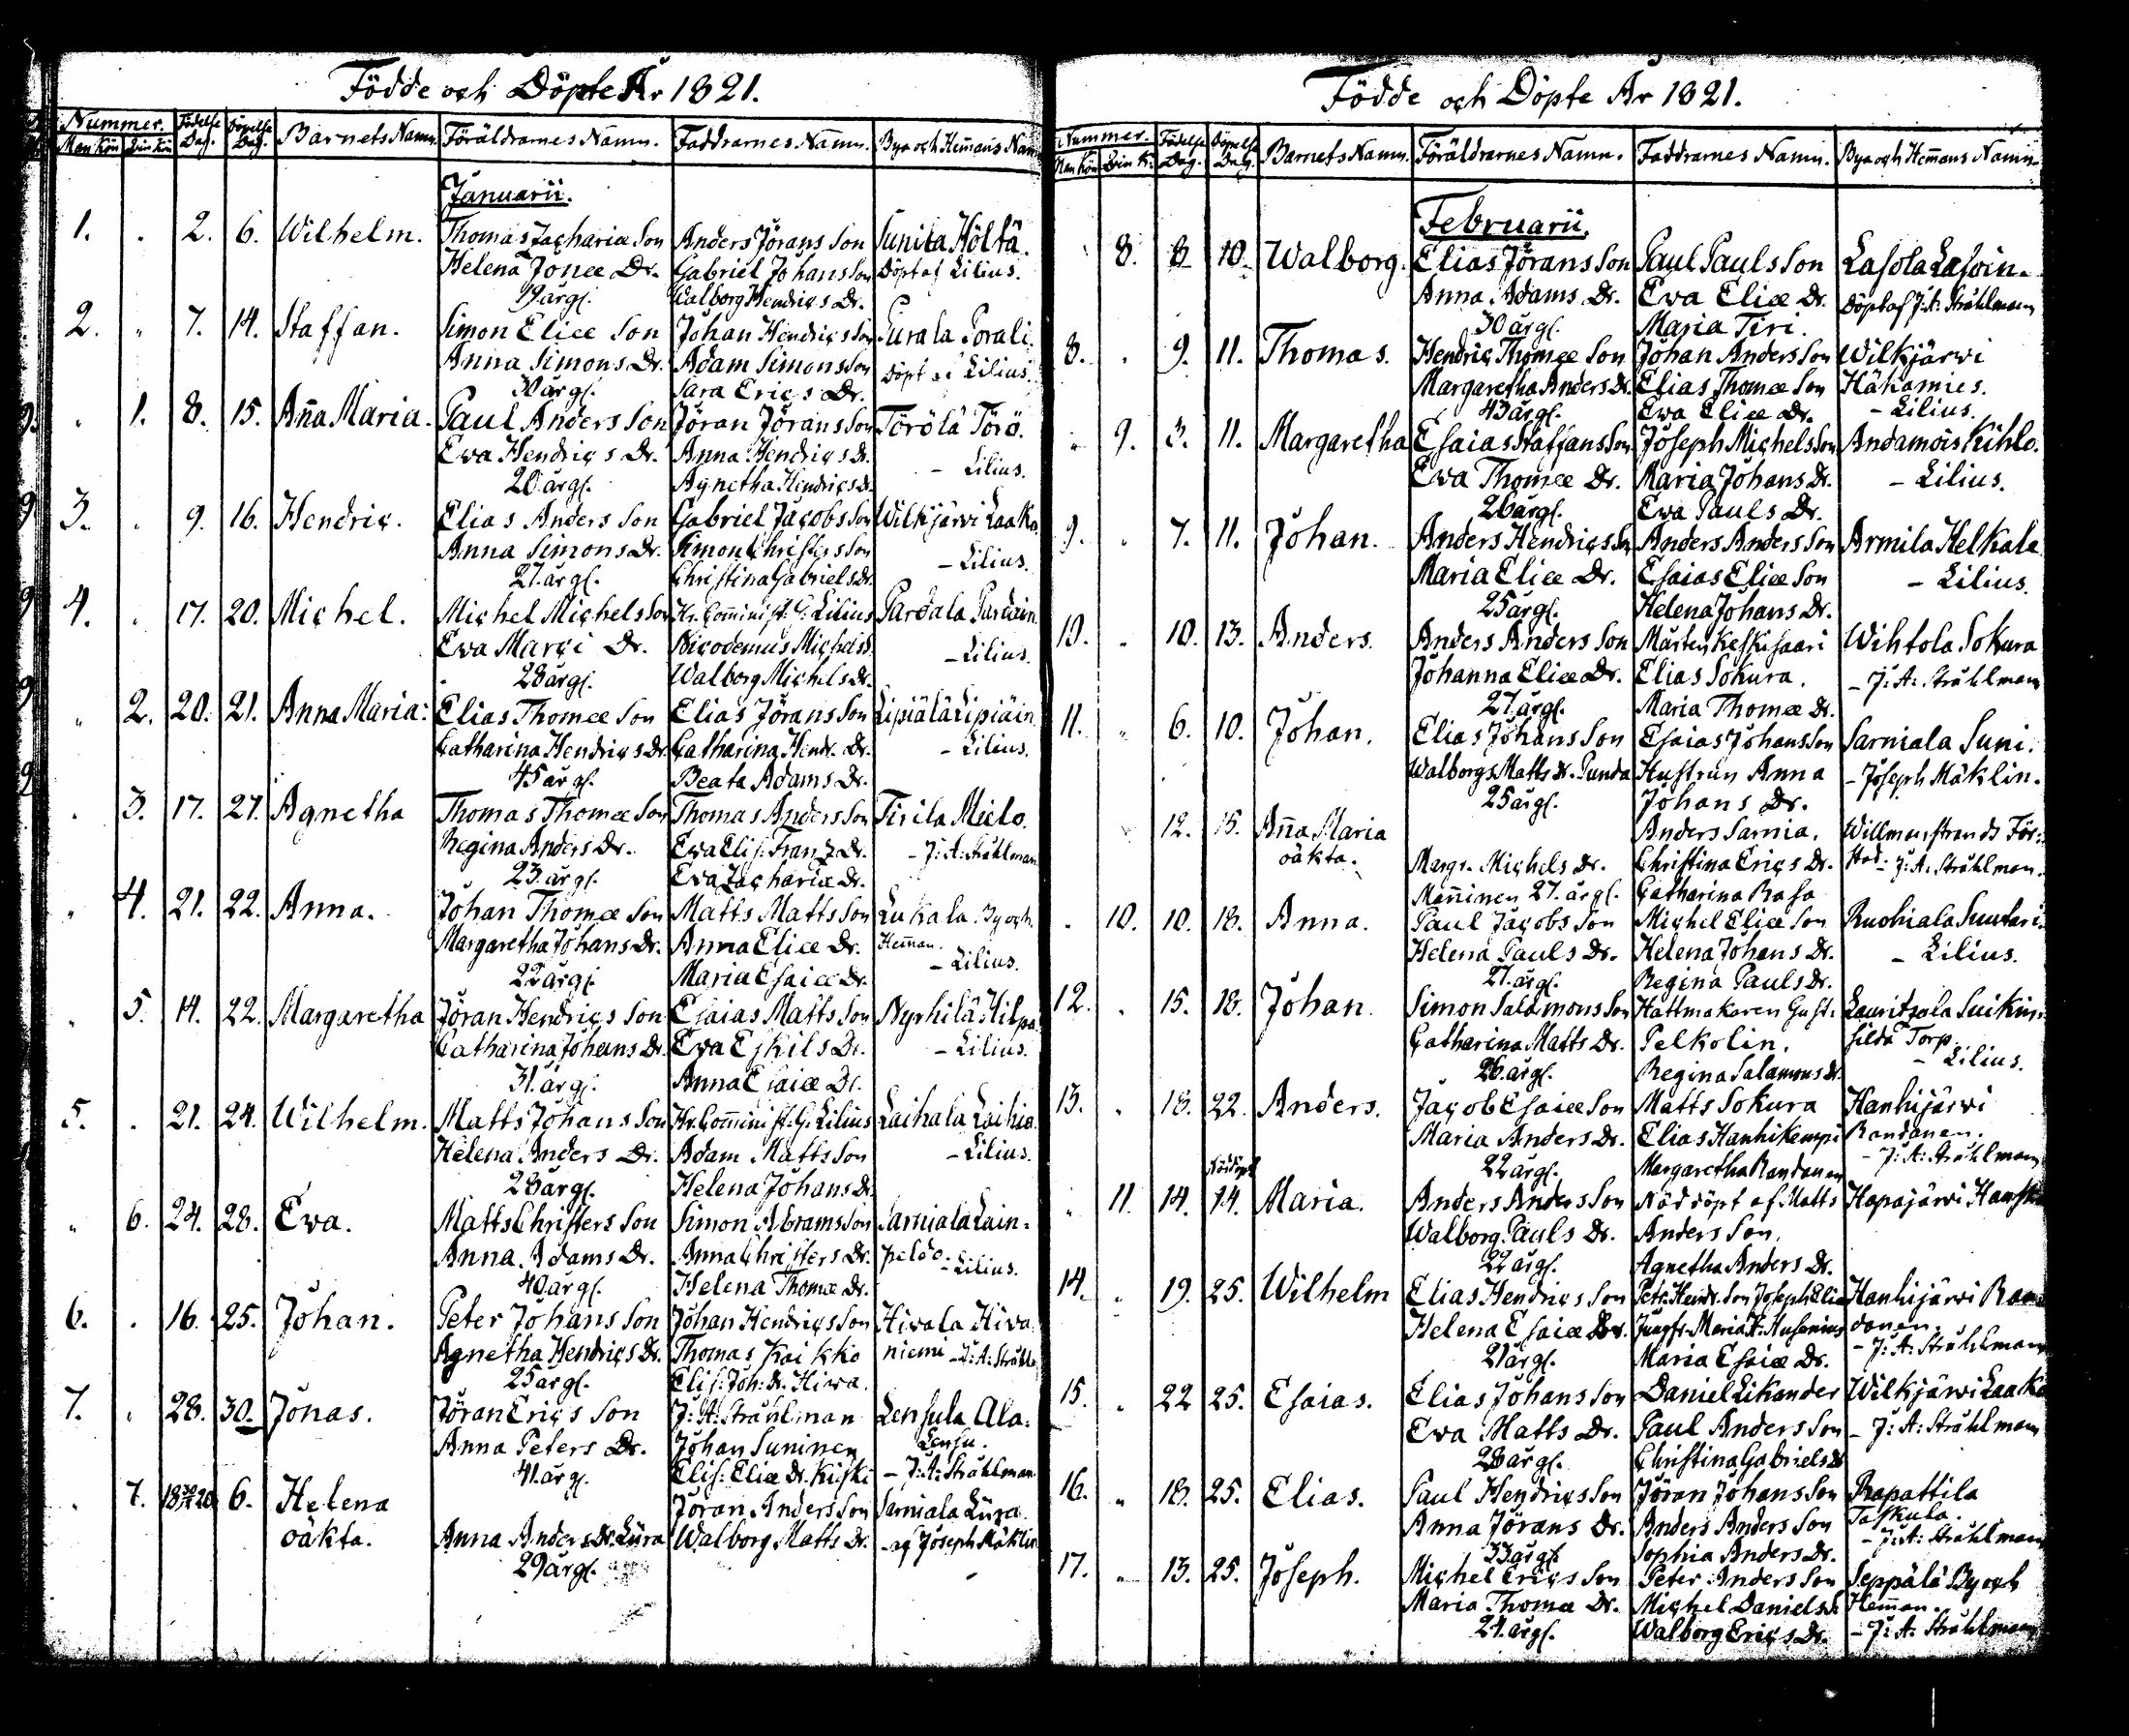 Födde och Döpte År 1821.
Nummer. Födelse Döpelse Barnets Namn. Föräldrarnes Namn. Faddrarnes Namn. Bya och Hemans Namn
Man Kön Qvin Kön Dag. Dag.
Januarii.
1. . 2. 6. Wilhelm. Thomas Zachariæ Son Anders Jörans Son Sunila Höltä.
Helena Jonæ Dr. Gabriel Johans Son Döpt af Lilius.
19 årg. Walborg Hendrics Dr.
2. " 7. 14. Staffan. Simon Eliæ Son Johan Hendrics Son Purala Porali.
Anna Simons Dr. Adam Simons Son Döpt af Lilius.
30 årg. Sara Erics Dr.
" 1. 8. 15. Aña Maria. Paul Anders Son Jöran Jörans Son Törölä Törö.
Eva Hendrics Dr. Anna Hendrics Dr. - Lilius.
20 årg. Agnetha Hendrics Dr.
3. . 9. 16. Hendric. Elias Anders Son Gabriel Jacobs Son Wilkjärvi Laako
Anna Simons Dr. Simon Christers Son - Lilius.
27. årg. Christina Gabriels Dr.
4. . 17. 20. Michel. Michel Michels Son Hr. Cominist. G: Lilius Pardala Pardain.
Eva Marci Dr. Nicodemus Michels S. - Lilius.
28 årg. Walborg Michels Dr.
" 2. 20. 21. Anna Maria: Elias Thomæ Son Elias Jörans Son Lipiälä Lipiäin.
Catharina Hendrics Dr. Catharina Hendr. Dr. - Lilius.
45 årg. Beata Adams Dr.
. 3. 17. 27. Agnetha Thomas Thomæ Son Thomas Anders Son Tirila Mielo.
Regina Anders Dr. Eva Elis: Franz Dr. - J: A: Stråhlman
23. årg. Eva Zachariæ Dr.
" 4. 21. 22. Anna. Johan Thomæ Son Matts Matts Son Lukala. By och
Margaretha Johans Dr. Anna Eliæ Dr. Heman.
22 årg. Maria Esaiæ Dr. - Lilius.
" 5. 14. 22. Margaretha Jöran Hendrics Son Esaias Matts Son Nyrhilä Hilpa
Catharina Johans Dr. Eva Eskils Dr. - Lilius.
31. årg. Anna Esaiæ Dr.
5. . 21. 24. Wilhelm. Matts Johans Son Hr. Cominist. G: Lilius Laihala Laihia.
Helena Anders Dr. Adam Matts Son - Lilius.
28 årg. Helena Johans Dr.
" 6. 24. 28. Eva. Matts Christers Son Simon Abrams Son Sarniala Lain=
Anna Adams Dr. Anna Christers Dr. peldo. - Lilius.
40 årg. Helena Thomæ Dr.
6. . 16. 25. Johan. Peter Johans Son Johan Hendrics Son Hivala Hiva
Agnetha Hendrics Dr. Thomas Kaikko niemi - J: A: Stråhl
25 årg. Elis: Joh: Dr. Hiwa.
7. " 28. 30. Jonas. Jöran Erics Son J: A: Stråhlman Lensula Ala=
Anna Peters Dr. Johan Suninen Lensu.
41. årg. Elis: Eliæ Dr. Kiiski - J: A: Stråhlman
. 7. 6. Helena Jöran Anders Son Sarniala Lüra.
oäkta. Anna Anders Dr. Lüra Walborg Matts Dr. - af Joseph Mäklin
29 årg.
Födde och Döpte År 1821.
Nummer. Födelse Döpelse Barnets Namn. Föräldrarnes Namn. Faddrarnes Namn. Bya och Hemans Namn.
Man Kön Qvin K: Dag. Dag.
Februarii.
8. 8 10. Walborg. Elias Jörans Son Paul Pauls Son Lasola Lasoin.
Anna Adams Dr. Eva Eliæ Dr. Döpt af J: A: Stråhlman
30 årg. Maria Tiri.
8. . 9. 11. Thomas. Hendric Thomæ Son Johan Anders Son Wilkjärwi
Margaretha Anders Dr. Elias Thomæ Son Häkämies.
43 årg. Ewa Eliæ Dr. - Lilius.
" 9. 3. 11. Margaretha Esaias Staffans Son Joseph Michels Son Andamois Kihlo.
Ewa Thomæ Dr. Maria Johans Dr. - Lilius.
26 årg. Ewa Pauls Dr.
9. . 7. 11. Johan. Anders Hendrics Son Anders Anders Son Armila Helkala
Maria Eliæ Dr. Esaias Eliæ Son - Lilius.
25 årg. Helena Johans Dr.
10. " 10. 13. Anders. Anders Anders Son Mårten Keskisaari Wihtola Sokura
Johanna Eliæ Dr. Elias Sokura. - J: A: Stråhlman
27. årg. Maria Thomæ Dr.
11. " 6. 10. Johan. Elias Johans Son Esaias Johans Son Sarniala Suni.
Walborgs Matts dr. Punda Hustrun Anna - Joseph Mäklin.
25 årg. Johans Dr.
12. 15. Aña Maria Anders Sarnia. Willmanstrands För=
oäkta. Margr. Michels Dr. Christina Erics Dr. stad. - J: A: Stråhlman.
Mañinen 27. årg. Catharina Rasa
. 10. 10. 18. Anna. Paul Jacobs Son Michel Eliæ Son Ruohiala Suutari.
Helena Pauls Dr. Helena Johans Dr. - Lilius.
27. årg. Regina Pauls Dr.
12. . 15. 18. Johan. Simon Salomons Son Hattmakaren Gust: Lauritzala Suikin=
Catharina Matts Dr. Pelkolin. silda Torp.
26. årg. Regina Salamons Dr. - Lilius.
13. " 18. 22. Anders. Jacob Esaiæ Son Matts Sokura Hanhijärwi
Maria Anders Dr. Elias Hanhikempi Randanen.
22 årg. Margaretha Randanen - J: A: Stråhlman
Nöddöpt
" 11. 14. 14. Maria. Anders Anders Son Nöddöpt af Matts Hapajärwi Hanski
Walborg Pauls Dr. Anders Son.
22 årg. Agnetha Anders Dr.
14. " 19. 25. Wilhelm Elias Hendrics Son Petr. Hendr. Son Joseph Eliæ Hanhijärwi Ran
Helena Esaiæ Dr. Jungfr. Maria H: Husenius danen.
21 årg. Maria Esaiæ Dr. - J: A: Stråhlman
15. " 22 25. Esaias. Elias Johans Son Daniel Likander Wilkjärwi Laako
Ewa Matts Dr. Paul Anders Son - J: A: Stråhlman
28 årg. Christina Gabriels Dr
16. " 18. 25. Elias. Paul Hendrics Son Jöran Johans Son Rapattila
Anna Jörans Dr. Anders Anders Son Taskula.
33 årg. Sophia Anders Dr. - J: A: Stråhlman
17. " 13. 25. Joseph. Michel Erics Son Peter Anders Son Seppälä By och
Maria Thomæ Dr. Michel Daniels S. Heman.
24. årg. Walborg Erics Dr. - J: A: Stråhlman